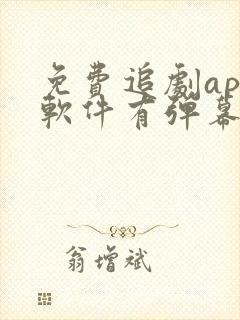 免費追劇ap
軟件有彈幕
翁增斌